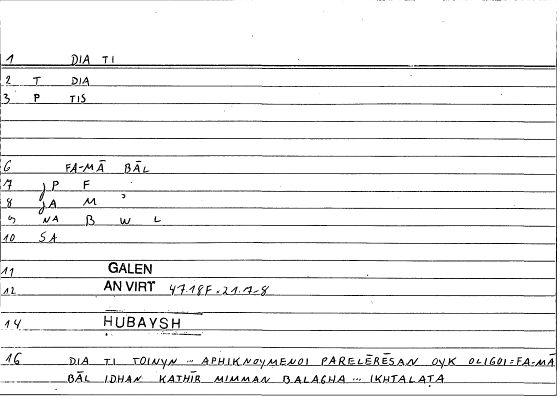 1 DIA TI
2 T DIA
3 P TIS
6 FA-MĀ BĀL
7 JP F
8 JA M ʾ
9 NA B W L
10 SA
11 GALEN
12 AN VIRT 4718F.21.7-8
14 HUBAYSH
16 DIA TI TOINYN ... APHIKNOYMENOI PARELĒRĒSAN OYK OLIGOI=FA-MĀ
BĀL IDHAN KATHĪR MIMMAN BALAGHA ... IKHTALAṬA